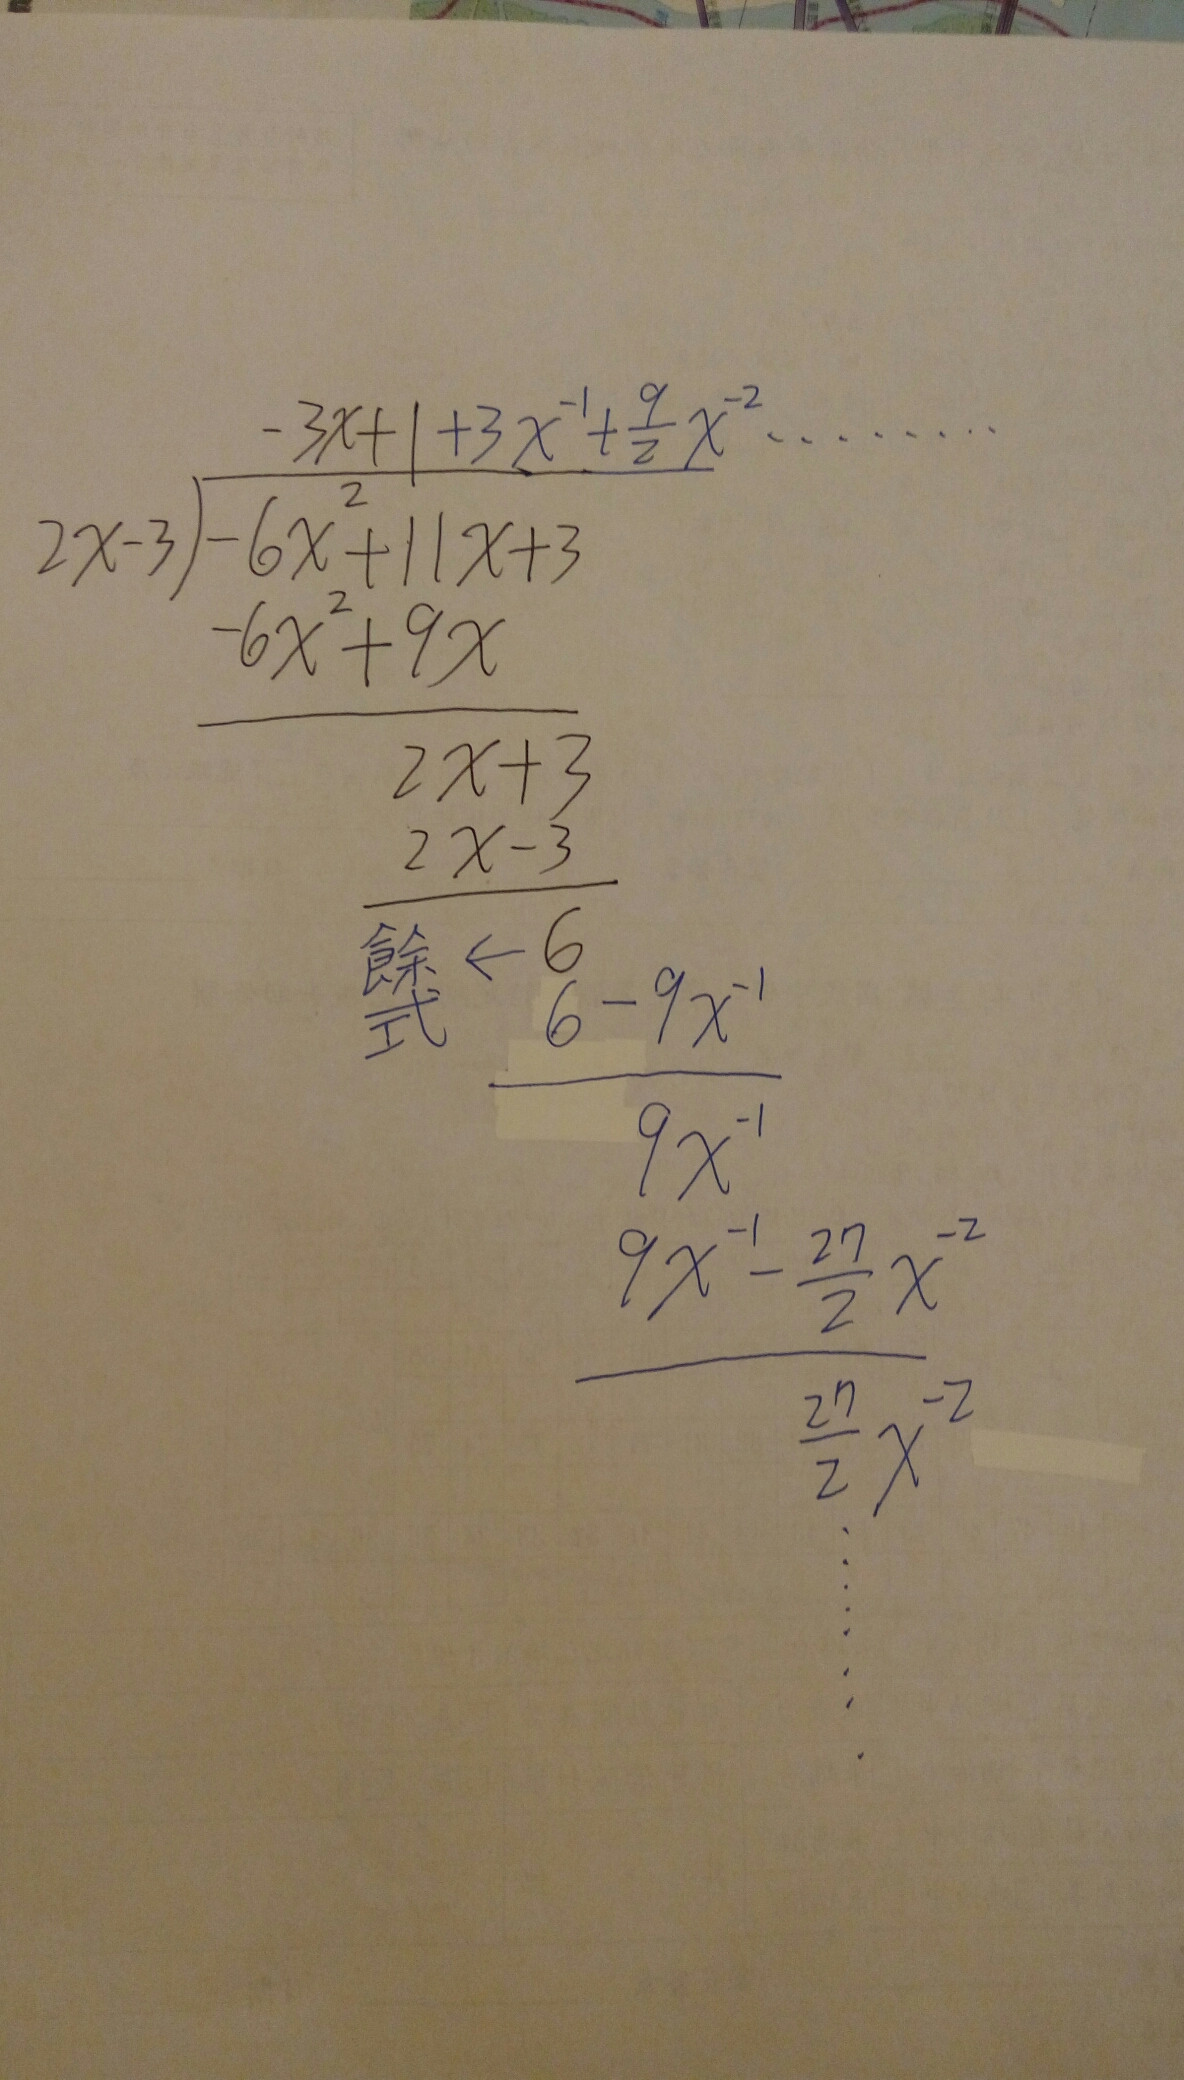 -3x+1+3x⁻¹+9/2 x⁻²········
2x-3)-6x²+11x+3
-6x²+9x
2x+3
2x-3
餘式←6
6-9x⁻¹
9x⁻¹
9x⁻¹-27/2 x⁻²
27/2 x⁻²